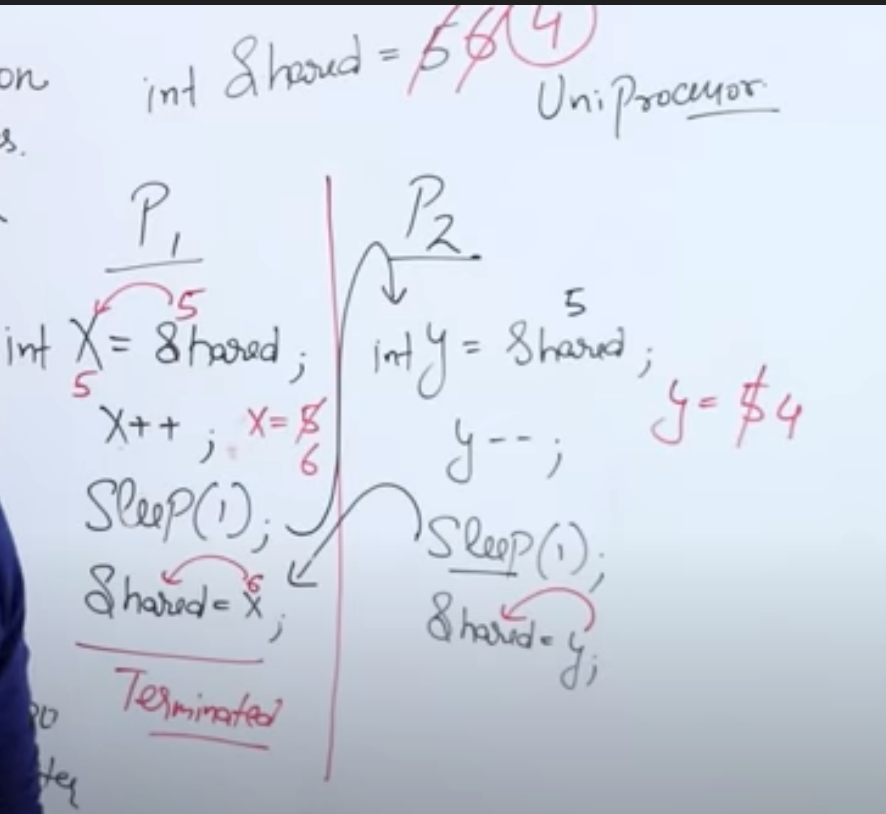 on
s.
int Shared = 5 6 4
UniProcessor
P1
5
int X = Shared;
5
X++; X = 5
6
Sleep(1);
6
Shared = x;
Terminated
P2
5
int y = Shared;
y--;
y = 5 4
Sleep(1);
Shared = y;